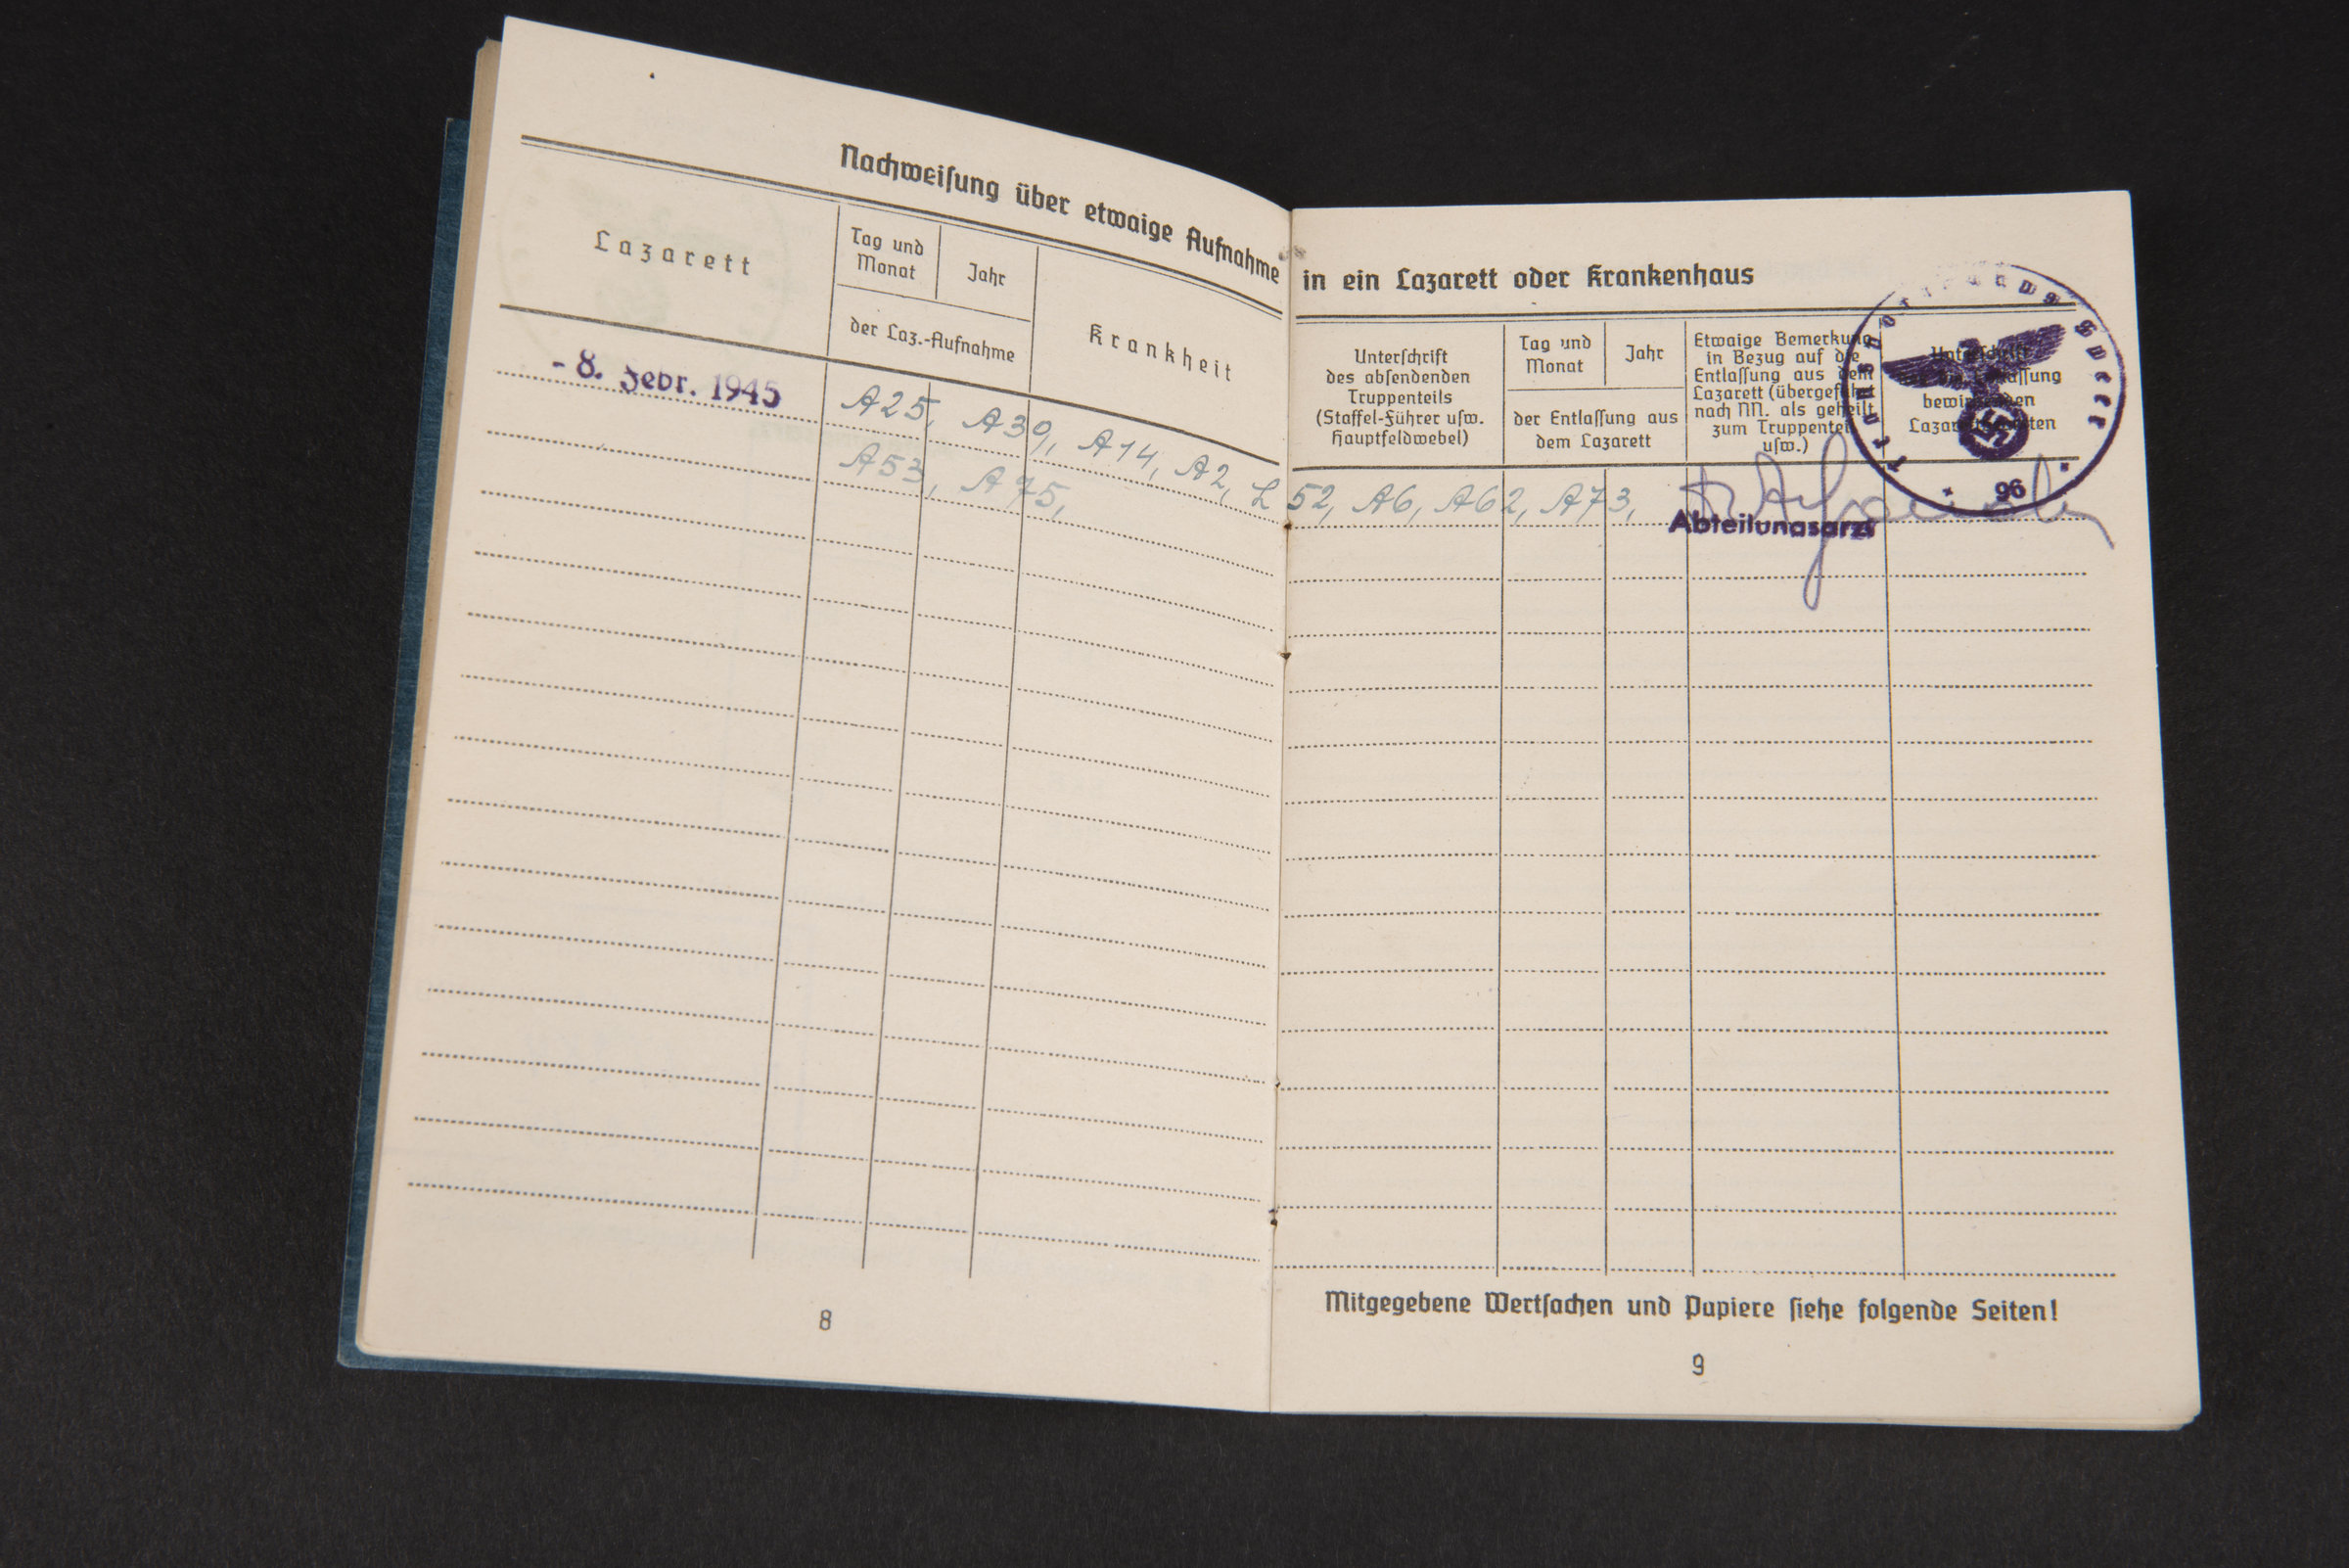 Nachweisung über etwaige Aufnahme
Lazarett
Tag und
Monat
Jahr
der Laz.-Aufnahme
Krankheit
- 8. Febr. 1945
A25, A39, A14, A2, L
A53, A75,
8
in ein Lazarett oder Krankenhaus
Unterschrift
des absendenden
Truppenteils
(Staffel-Führer usw.
Hauptfeldwebel)
Tag und
Monat
Jahr
der Entlassung aus
dem Lazarett
Etwaige Bemerkung
in Bezug auf die
Entlassung aus dem
Lazarett (übergeführt
nach NN. als geheilt
zum Truppenteil
usw.)
Unterschrift
bewirkenden
52, A6, A62, A73,
96
Abteilungsarzt
Mitgegebene Wertsachen und Papiere siehe folgende Seiten!
9